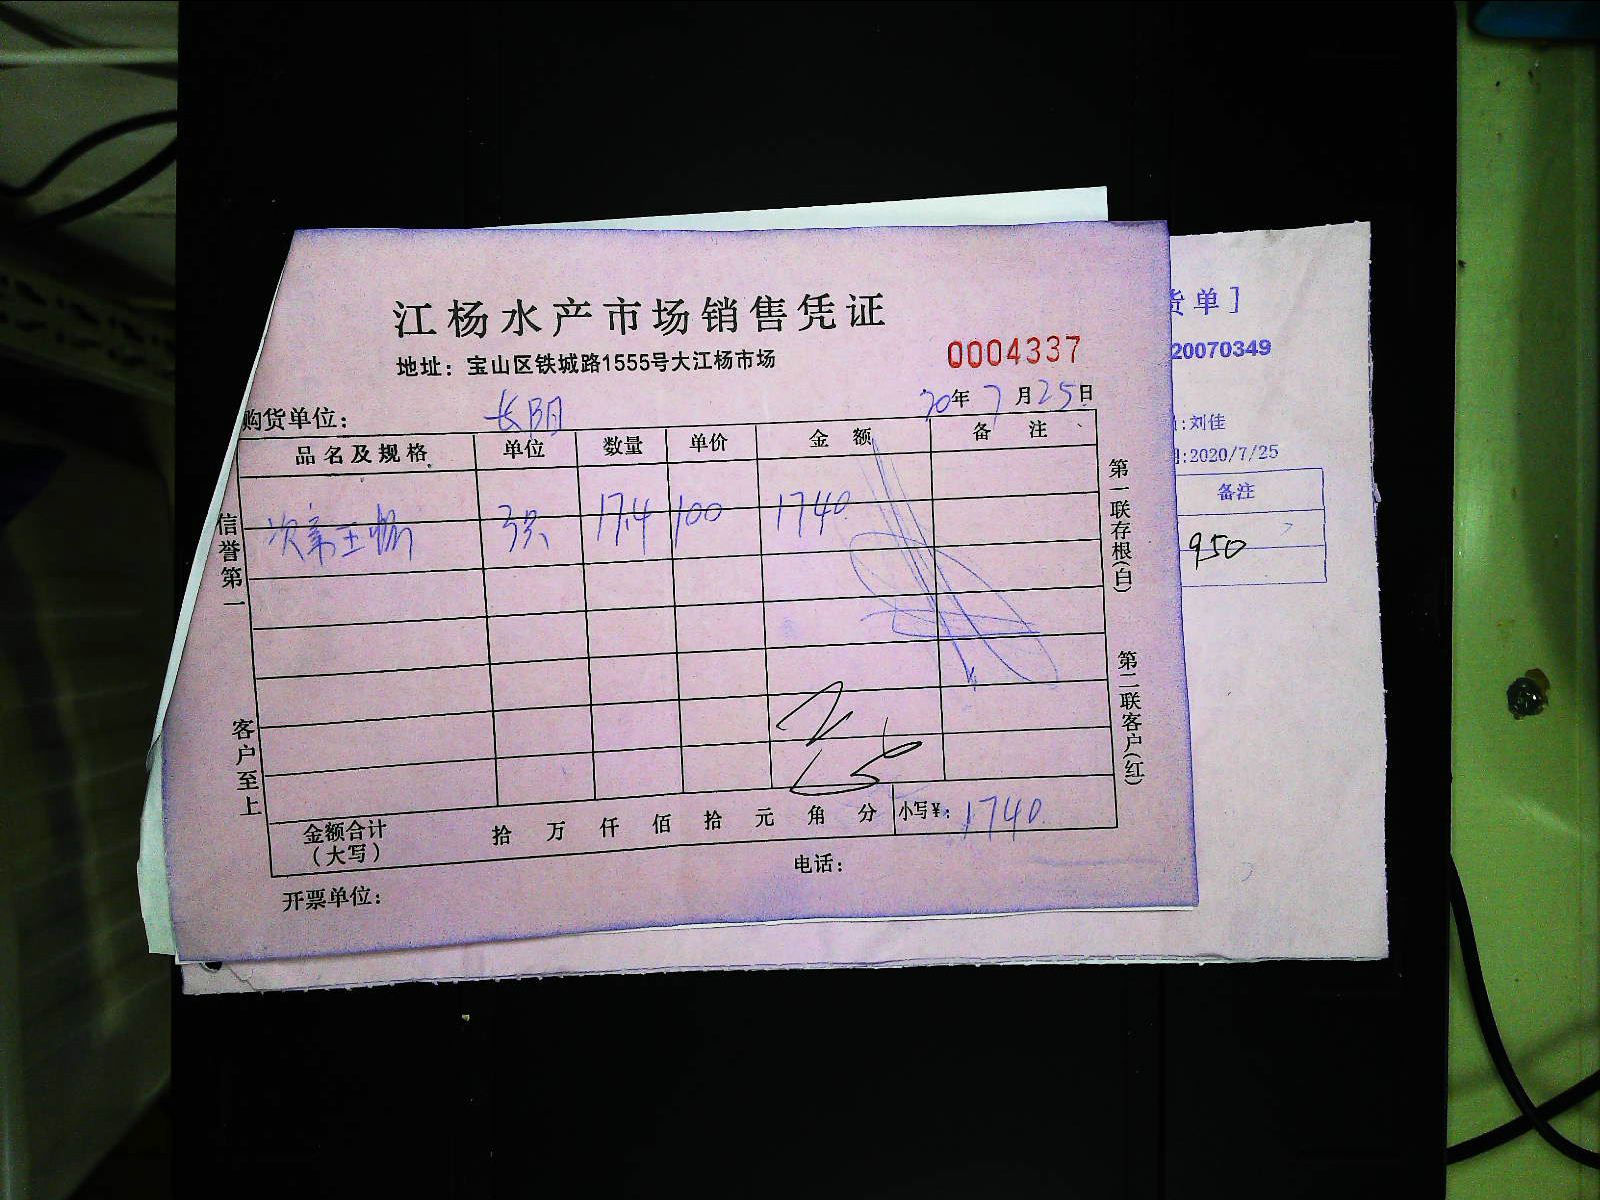 江杨水产市场销售凭证
地址：宝山区铁城路1555号大江杨市场
0004337
购货单位： 长阳
20年 7月25日
品名及规格 单位 数量 单价 金额 备注
3只 17.4 100 1740
金额合计（大写） 拾 万 仟 佰 拾 元 角 分 小写¥： 1740
开票单位： 电话：
信誉第一
客户至上
第一联存根（白）
第二联客户（红）
货单]
20070349
:刘佳
:2020/7/25
备注
950